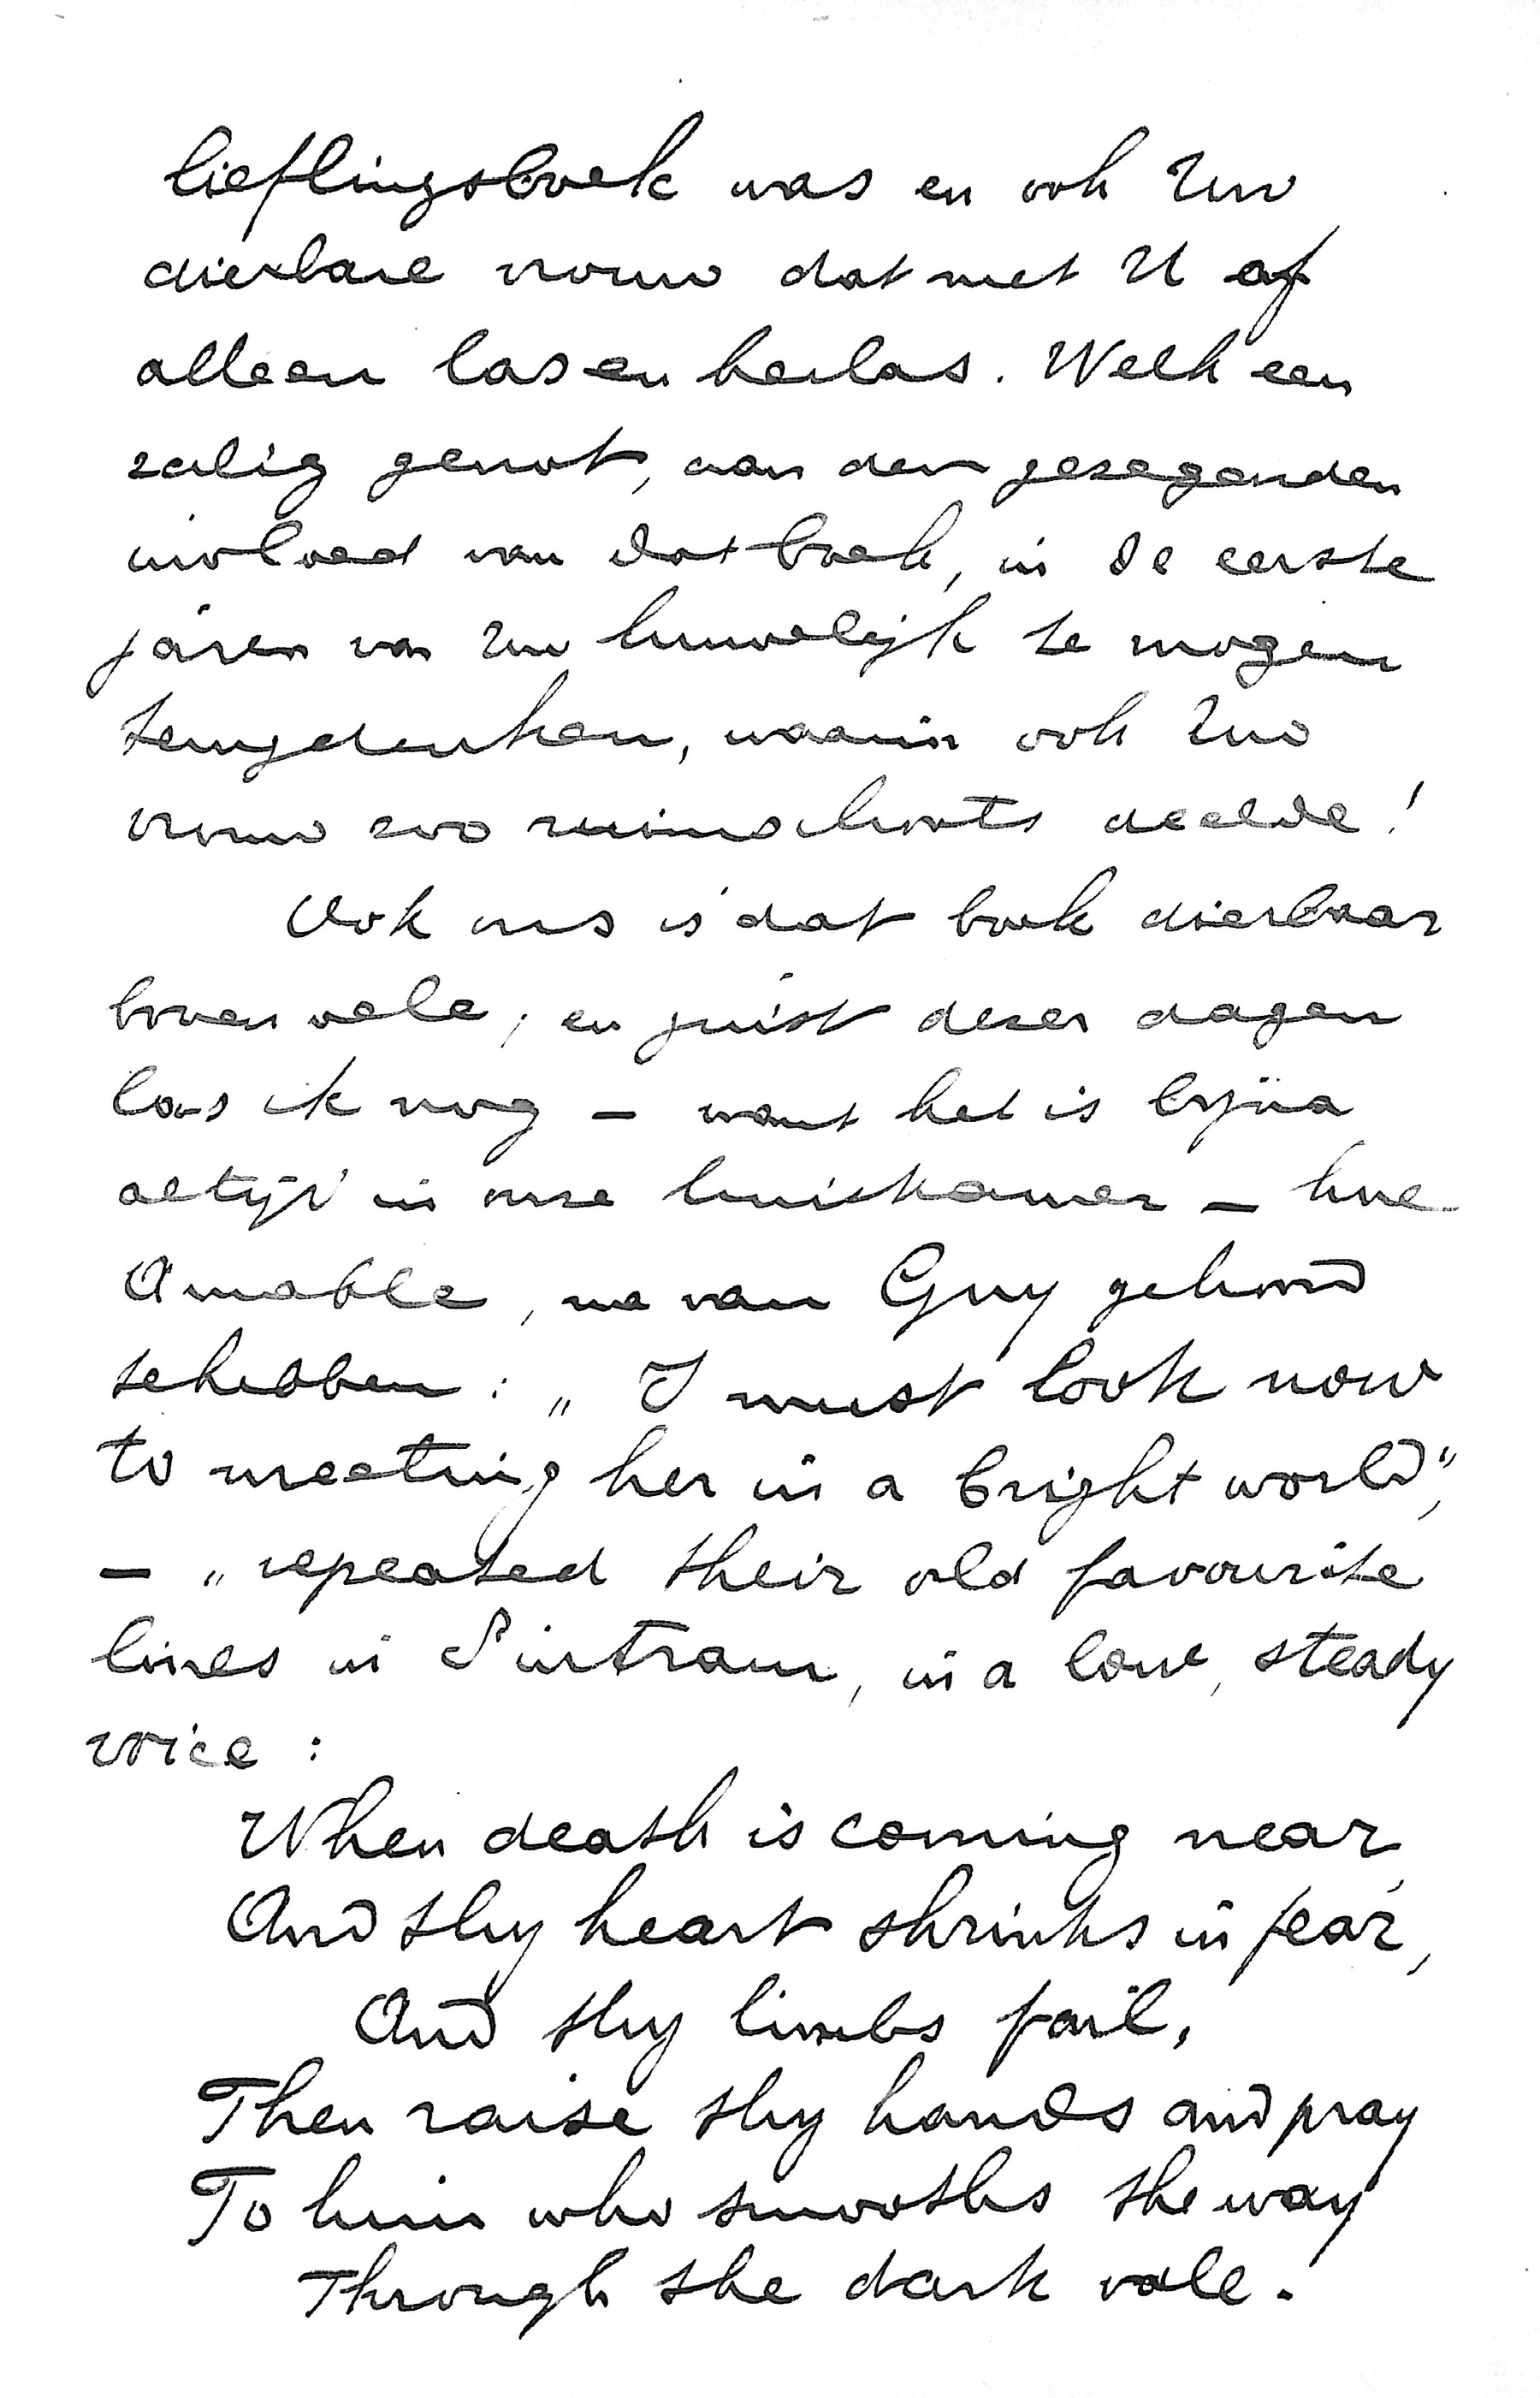 lieflingsboek was en ook Uw
dierbare vrouw dat met U of
alleen las en herlas. Welk een
zalig genot, aan den gezegenden
invloed van dat boek, in de eerste
jaren van Uw huwelijk te mogen
terugdenken, waarin ook Uw
vrouw zoo ruimschoots deelde!
Ook ons is dat boek dierbaar
boven vele; en juist dezer dagen
las ik nog – want het is bijna
altijd in onze huiskamer – hoe
Amable, na van Guy gehoord
te hebben: „I must look now
to meeting her in a bright world",
– „repeated their old favourite
lines in Sintram, in a low, steady
voice:
When death is coming near,
And thy heart shrinks in fear,
And thy limbs fail,
Then raise thy hands and pray
To him who smooths the way
Through the dark vale.